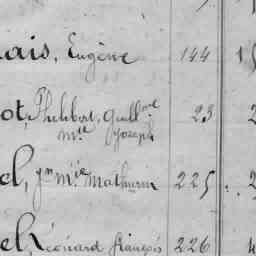 ais, Eugène 144 1
ot, Philibert, Guill.me 23 2
M.ie Joseph
el, Jn M.ie Mathurin 225 . 2
el, Léonard françois 226 4